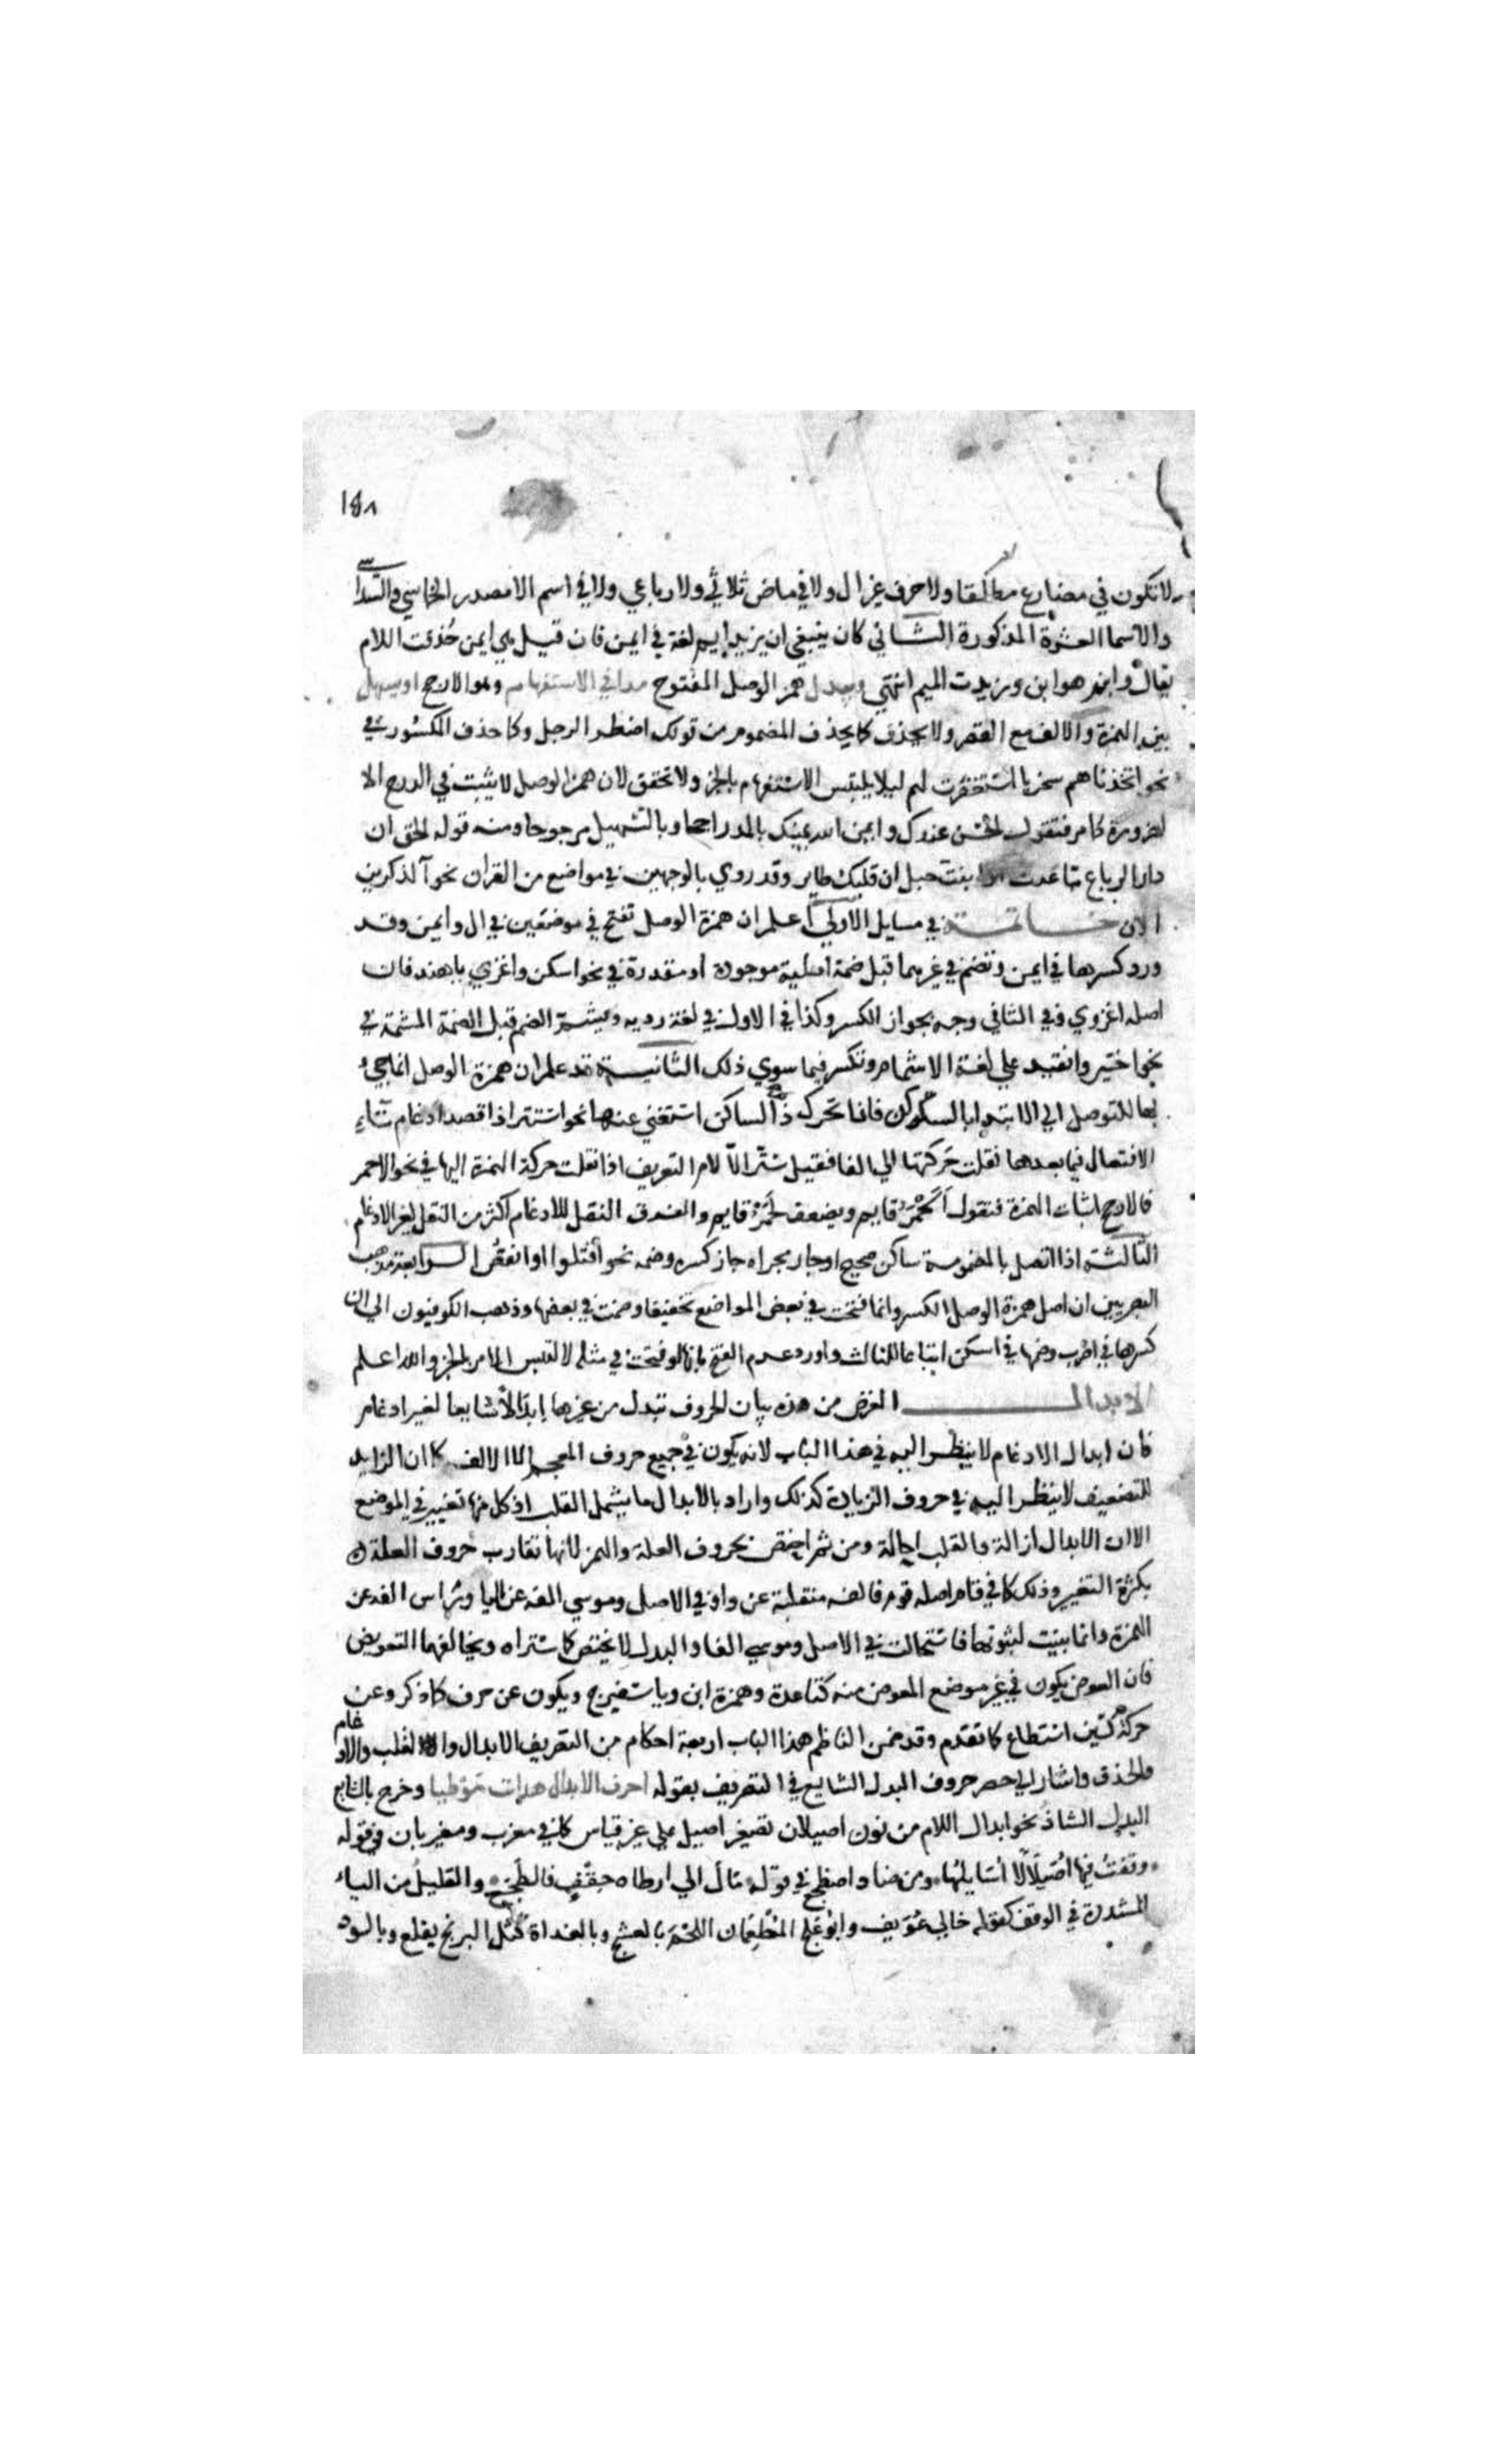 ١٤٨
لا تكون في مضارع مطلقا ولا حرف غير ال ولا في ماض ثلاثي ولا رباعي ولا في اسم الا مصدر الخماسي والسداسي
والاسما العشرة المذكورة الثاني كان ينبغي ان يزيد ايم لغة في ايمن فان قيل هي ايمن حذفت اللام
يقال وابنم هو ابن وزيدت الميم انتهي ويبدل همز الوصل المفتوح مدا في الاستفهام وهو الارجح او يسهل
بين الهمزة والالف مع القصر ولا يحذف كما يحذف المضموم من قولك اضطر الرجل وكما حذف المكسور في
نحو اتخذناهم سخريا استغفرت لهم ليلا يلتبس الاستفهام بالخبر ولا تحقق لان همز الوصل لا يثبت في الدرج الا
لضرورة كما مر فتقول الحسن عندك وايمن الله يمينك بالمد راجحا وبالتسهيل مرجوحا ومنه قوله الحق ان
دار الرباع تباعدت او انبت حبل ان قلبك طاير وقد روي بالوجهين في مواضع من القران نحو آلذكرين
الان خاتمة في مسايل الاولي اعلم ان همزة الوصل تفتح في موضعين في ال وايمن وقد
ورد كسرها في ايمن وتضم في غيرهما قبل ضمة اصلية موجودة او مقدرة في نحو اسكن واغزي يا هند فان
اصله اغزوي وفي الثاني وجه بجواز الكسر وكذا في الاول في لغة رديه ويشم الضم قبل الضمة المشمة في
نحو اختير وانقيد علي لغة الاشمام وتكسر فيما سوي ذلك الثانية قد علم ان همزة الوصل انما جيء
بها للتوصل الي الابتدا بالسكون فاذا تحرك ذا الساكن استغني عنها نحو استتر اذا قصد ادغام تاء
الافتعال فيما بعدها نقلت حركتها الي الفا فقيل ستر الا لام التعريف اذا نقلت حركة الهمزة اليها في نحو الاحمر
فالارجح اثبات الهمزة فتقول الحمر قايم ويضعف لحمر قايم والفرق النقل للادغام اكثر من النقل لغير الادغام
الثالثة اذا اتصل بالمضمومة ساكن صحيح او جار مجراه جاز كسره وضمه نحو ان اقتلوا او انقص الرابعة مذهب
البصريين ان اصل همزة الوصل الكسر وانما فتحت في بعض المواضع تخفيفا وضمت في بعضها وذهب الكوفيون الي ان
كسرها في اضرب وضمها في اسكن اتباعا للثالث واورد عدم الفتح بانها لو فتحت في مثله لالتبس الامر بالخبر والله اعلم
الابدال الغرض من هذه بيان الحروف تبدل من غيرها ابدالا شايعا لغير ادغام
فان ابدال الادغام لا ينظر اليه في هذا الباب لانه يكون في جميع حروف المعجم الا الالف كما ان الزايد
للتضعيف لا ينظر اليه في حروف الزيادة كذلك واراد بالابدال ما يشمل القلب اذ كل منها تغيير في الموضع
الا ان الابدال ازالة والقلب احالة ومن ثم اختص بحروف العلة والهمز لانها تقارب حروف العلة
بكثرة التغيير وذلك كما في قام اصله قوم فالفه منقلبة عن واو في الاصل وموسي الفه عن اليا وراس الفه عن
الهمزة وانما بينت لثبوتها فاستحالت في الاصل وموسي الفا والبدل لا يختص كما ستراه ويخالفهما التعويض
فان العوض يكون في غير موضع المعوض منه كتا عدة وهمزة ابن ويا سفيرج ويكون عن حرف كما ذكر وعن
حركة كسين اسطاع كما تقدم وقد ضمن الناظم هذا الباب اربعة احكام من التعريف الابدال والقلب والادغام
والحذف واشار الي حصر حروف البدل الشايع في التعريف بقوله احرف الابدال هدات موطيا وخرج بالشايع
البدل الشاذ نحو ابدال اللام من نون اصيلان تصغير اصيل علي غير قياس كما في مغرب ومغيربان في قوله
وقفت فيها اصيلالا اسايلها ومن ضاد اضطجع في قوله مال الي ارطاه حقف فالطجع والقليل من الياء
المشددة في الوقف كقوله خالي عويف وابو علج المطعمان اللحم بالعشج وبالغداة كتل البرنج يقلع وبالود